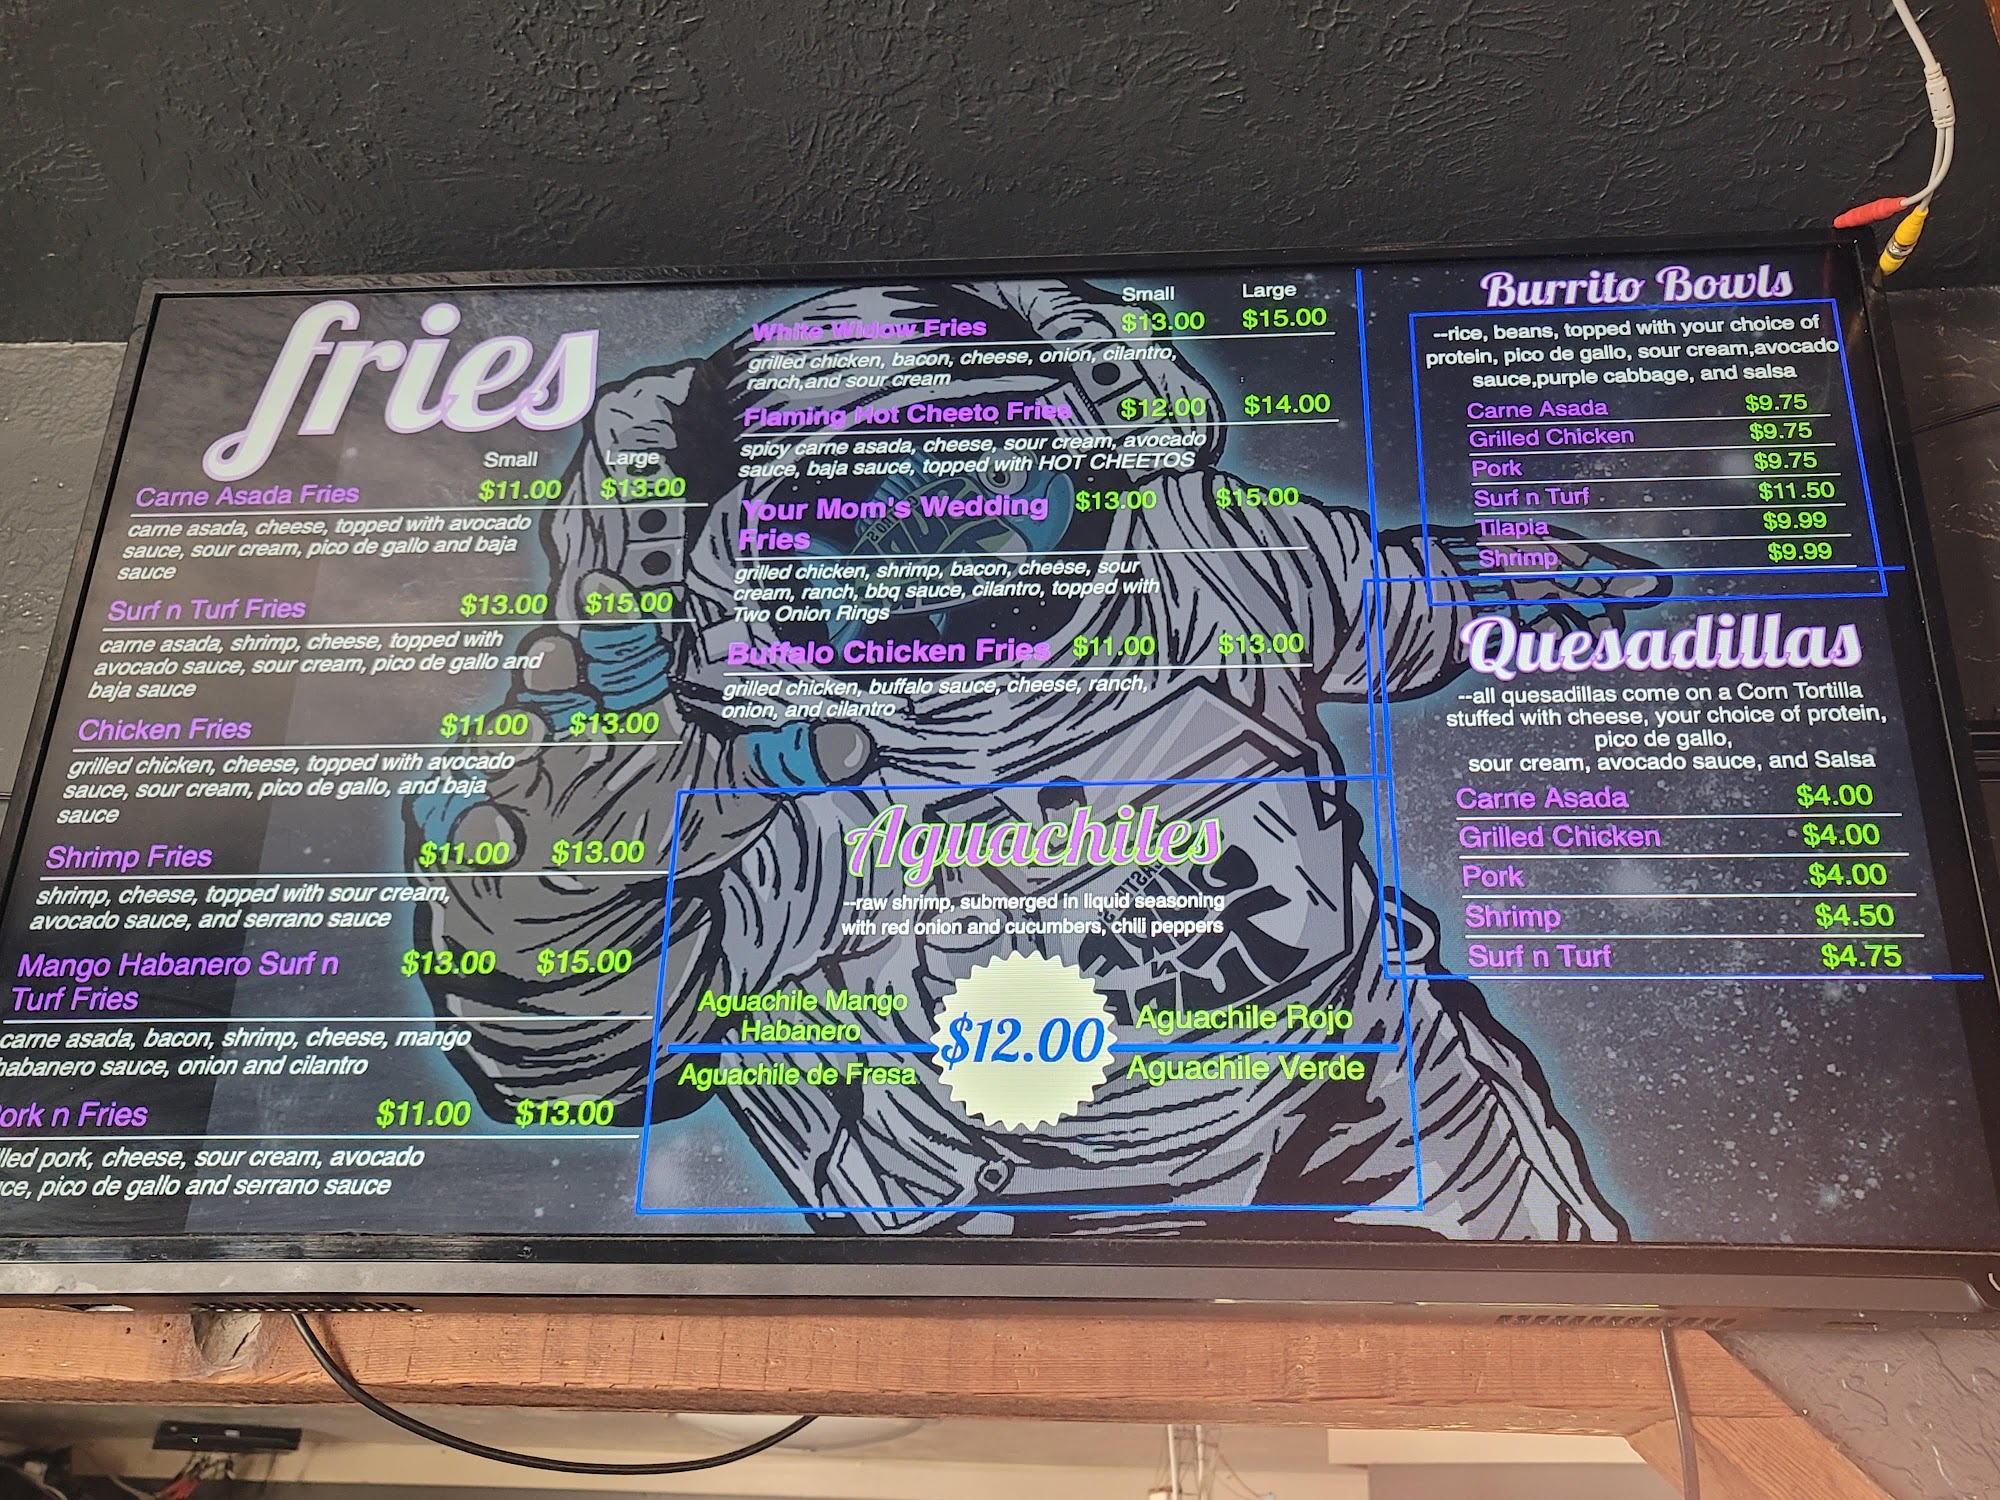 fries
Small Large
Carne Asada Fries $11.00 $13.00
carne asada, cheese, topped with avocado
sauce, sour cream, pico de gallo and baja
sauce
Surf n Turf Fries $13.00 $15.00
carne asada, shrimp, cheese, topped with
avocado sauce, sour cream, pico de gallo and
baja sauce
Chicken Fries $11.00 $13.00
grilled chicken, cheese, topped with avocado
sauce, sour cream, pico de gallo, and baja
sauce
Shrimp Fries $11.00 $13.00
shrimp, cheese, topped with sour cream,
avocado sauce, and serrano sauce
Mango Habanero Surf n $13.00 $15.00
Turf Fries
carne asada, bacon, shrimp, cheese, mango
habanero sauce, onion and cilantro
ork n Fries $11.00 $13.00
lled pork, cheese, sour cream, avocado
ce, pico de gallo and serrano sauce
Small Large
White Widow Fries $13.00 $15.00
grilled chicken, bacon, cheese, onion, cilantro,
ranch,and sour cream
Flaming Hot Cheeto Fries $12.00 $14.00
spicy carne asada, cheese, sour cream, avocado
sauce, baja sauce, topped with HOT CHEETOS
Your Mom's Wedding $13.00 $15.00
Fries
grilled chicken, shrimp, bacon, cheese, sour
cream, ranch, bbq sauce, cilantro, topped with
Two Onion Rings
Buffalo Chicken Fries $11.00 $13.00
grilled chicken, buffalo sauce, cheese, ranch,
onion, and cilantro
Aguachiles
--raw shrimp, submerged in liquid seasoning
with red onion and cucumbers, chili peppers
Aguachile Mango
Habanero
Aguachile de Fresa
$12.00
Aguachile Rojo
Aguachile Verde
Burrito Bowls
--rice, beans, topped with your choice of
protein, pico de gallo, sour cream,avocado
sauce,purple cabbage, and salsa
Carne Asada $9.75
Grilled Chicken $9.75
Pork $9.75
Surf n Turf $11.50
Tilapia $9.99
Shrimp $9.99
Quesadillas
--all quesadillas come on a Corn Tortilla
stuffed with cheese, your choice of protein,
pico de gallo,
sour cream, avocado sauce, and Salsa
Carne Asada $4.00
Grilled Chicken $4.00
Pork $4.00
Shrimp $4.50
Surf n Turf $4.75